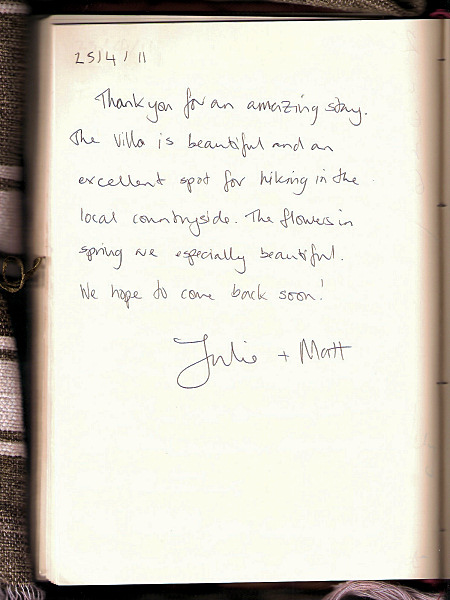 25/4/11
Thank you for an amazing stay.
The Villa is beautiful and an
excellent spot for hiking in the
local countryside. The flowers in
spring are especially beautiful.
We hope to come back soon!
Julie + Matt